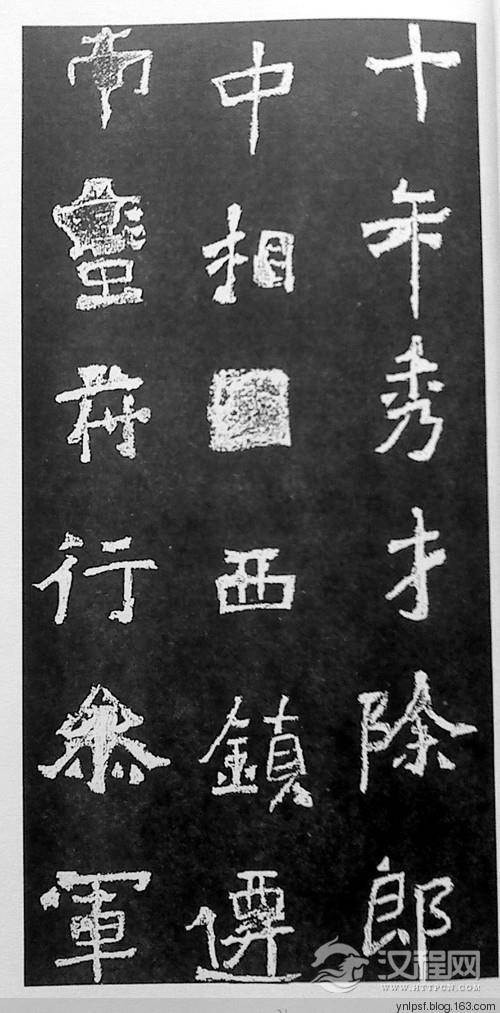 十年秀才除郎
中相西鎮遷
南蠻府行參軍
汉程网
WWW.HTTPCN.COM
ynlpsf.blog.163.com